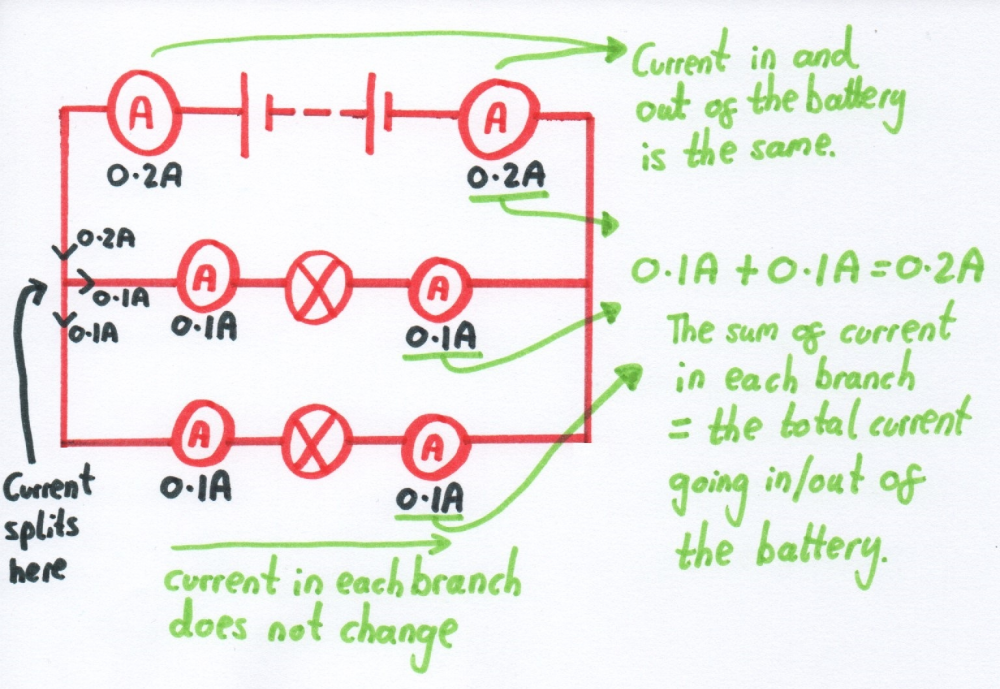 Current in and
out of the battery
is the same.
A
A
0.2A
0.2A
0.2A
0.1A
0.1A
A
A
0.1A
0.1A
0.1A + 0.1A = 0.2A
The sum of current
in each branch
= the total current
going in/out of
the battery.
A
A
0.1A
0.1A
Current
splits
here
current in each branch
does not change